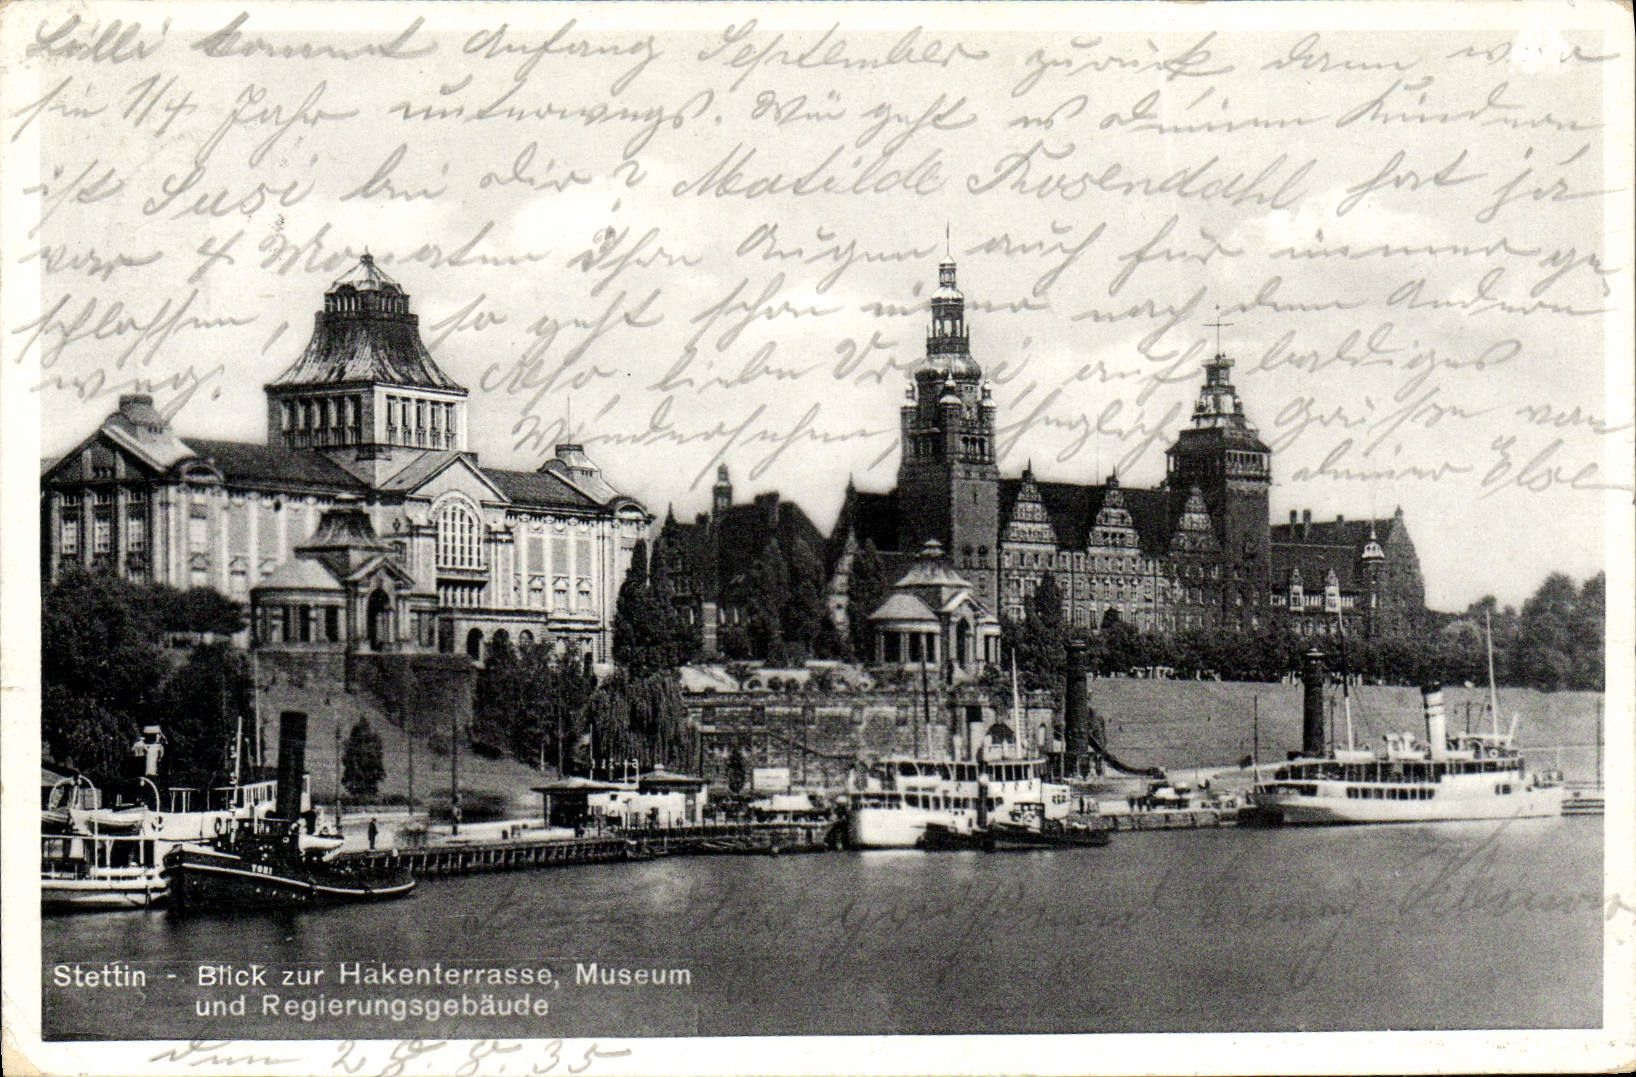 Lilli kommt Anfang September zurück dann war
sie 1/4 Jahr unterwegs. Wie geht es deinen Kindern
ist Susi bei dir? Matilde Rosendahl hat ja
vor 4 Monaten Ihre Augen auch für immer ge
schlossen, so geht schon einer nach dem Andern
weg. Also liebe Ursi, auf baldiges
Wiedersehen, Grüsse von
deiner Else
YORI
Stettin - Blick zur Hakenterrasse, Museum
und Regierungsgebäude
den 28.8.35